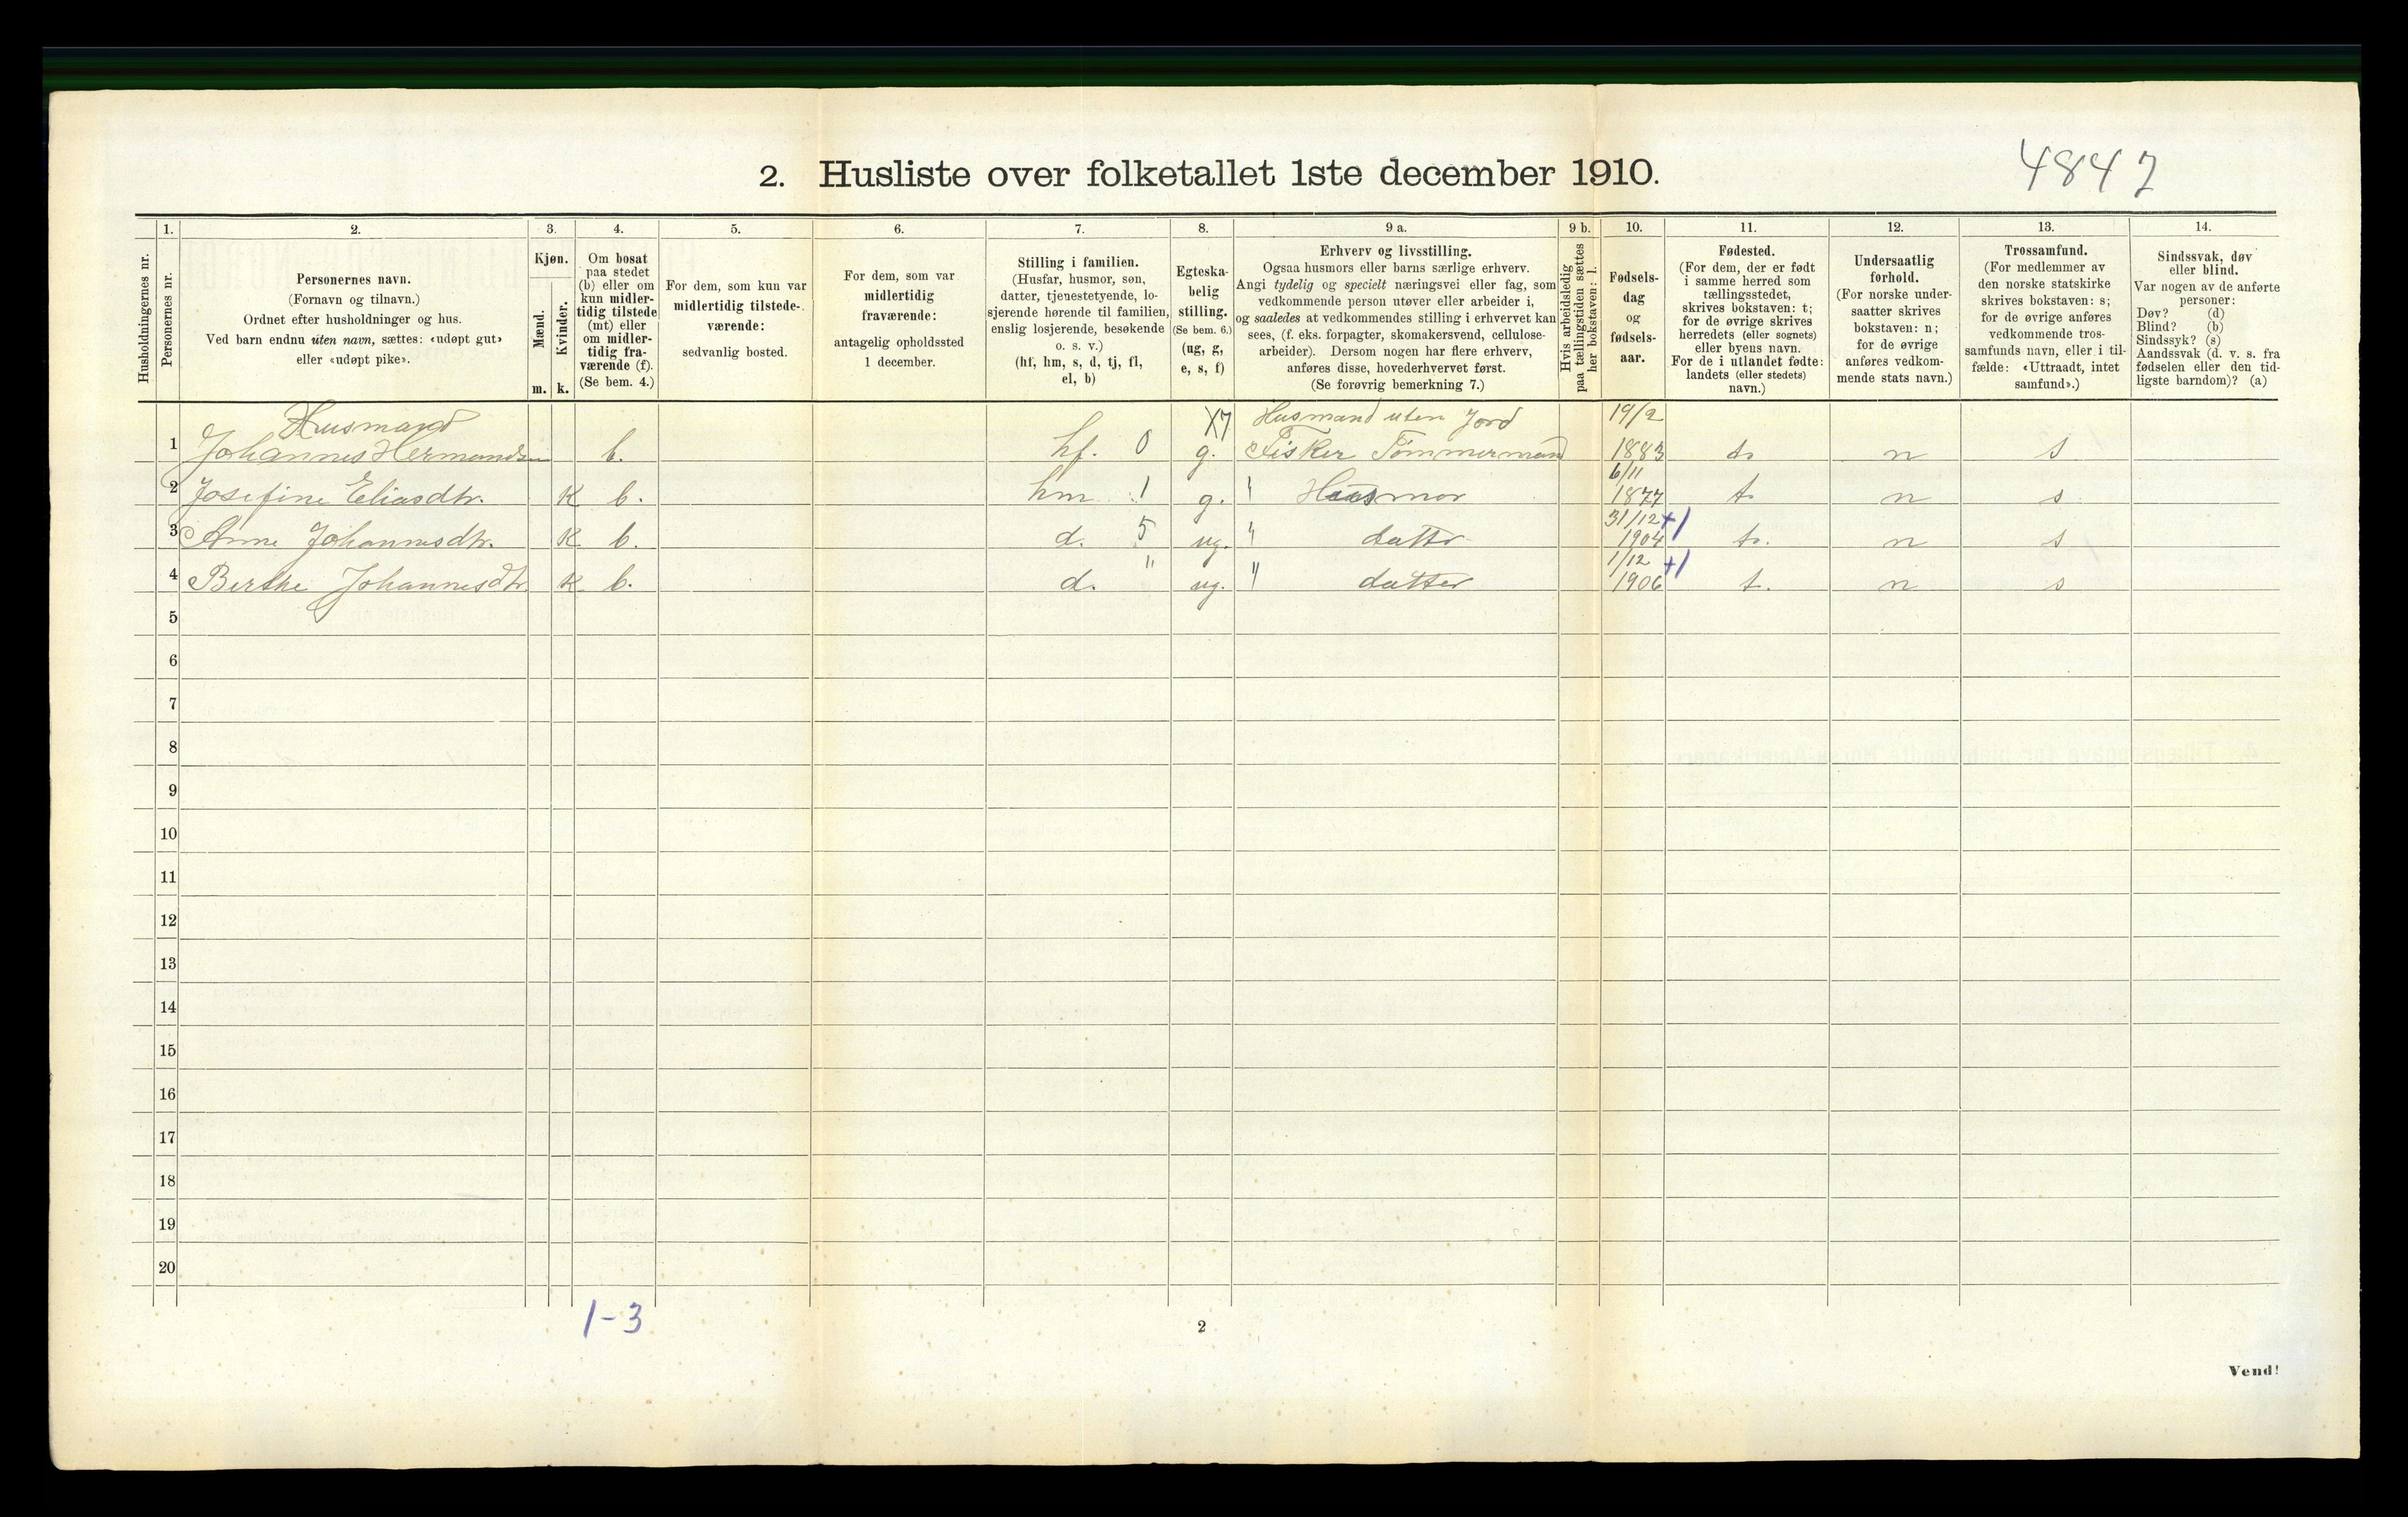 2. Husliste over folketallet 1ste december 1910.
4847
Husholdningernes nr.
1.
Personernes nr.
2.
Personernes navn.
(Fornavn og tilnavn.)
Ordnet efter husholdninger og hus.
Ved barn endnu uten navn, sættes: «udøpt gut»
eller «udøpt pike».
3.
Kjøn.
Mænd.
m.
Kvinder.
k.
4.
Om bosat
paa stedet
(b) eller om
kun midler-
tidig tilstede
(mt) eller
om midler-
tidig fra-
værende (f).
(Se bem. 4.)
5.
For dem, som kun var
midlertidig tilstede-
værende:
sedvanlig bosted.
6.
For dem, som var
midlertidig
fraværende:
antagelig opholdssted
1 december.
7.
Stilling i familien.
(Husfar, husmor, søn,
datter, tjenestetyende, lo-
sjerende hørende til familien,
enslig losjerende, besøkende
o. s. v.)
(hf, hm, s, d, tj, fl,
el, b)
8.
Egteska-
belig
stilling.
(Se bem. 6.)
(ug, g,
e, s, f)
9 a.
Erhverv og livsstilling.
Ogsaa husmors eller barns særlige erhverv.
Angi tydelig og specielt næringsvei eller fag, som
vedkommende person utøver eller arbeider i,
og saaledes at vedkommendes stilling i erhvervet kan
sees, (f. eks. forpagter, skomakersvend, cellulose-
arbeider). Dersom nogen har flere erhverv,
anføres disse, hovederhvervet først.
(Se forøvrig bemerkning 7.)
9 b.
Hvis arbeidsledig
paa tællingstiden sættes
her bokstaven: l.
10.
Fødsels-
dag
og
fødsels-
aar.
11.
Fødested.
(For dem, der er født
i samme herred som
tællingsstedet,
skrives bokstaven: t;
for de øvrige skrives
herredets (eller sognets)
eller byens navn.
For de i utlandet fødte:
landets (eller stedets)
navn.)
12.
Undersaatlig
forhold.
(For norske under-
saatter skrives
bokstaven: n;
for de øvrige
anføres vedkom-
mende stats navn.)
13.
Trossamfund.
(For medlemmer av
den norske statskirke
skrives bokstaven: s;
for de øvrige anføres
vedkommende tros-
samfunds navn, eller i til-
fælde: «Uttraadt, intet
samfund».)
14.
Sindssvak, døv
eller blind.
Var nogen av de anførte
personer:
Døv? (d)
Blind? (b)
Sindssyk? (s)
Aandssvak (d. v. s. fra
fødselen eller den tid-
ligste barndom)? (a)
Husmand X7 Husmand uten Jord 19/2
1 Johannes Hermandsen b. hf. 0 g. Fisker Tømmermand 1883 t. n s
6/11
2 Josefine Eliasdtr. K b. hm 1 g. " Husmor 1877 t. n s
31/12 +1
3 Anne Johannesdtr. K b. d. 5 ug. " datter 1904 t. n s
1/12 +1
4 Berthe Johannesdtr. K b. d. " ug. " datter 1906 t. n s
5
6
7
8
9
10
11
12
13
14
15
16
17
18
19
20
1-3
2
Vend!